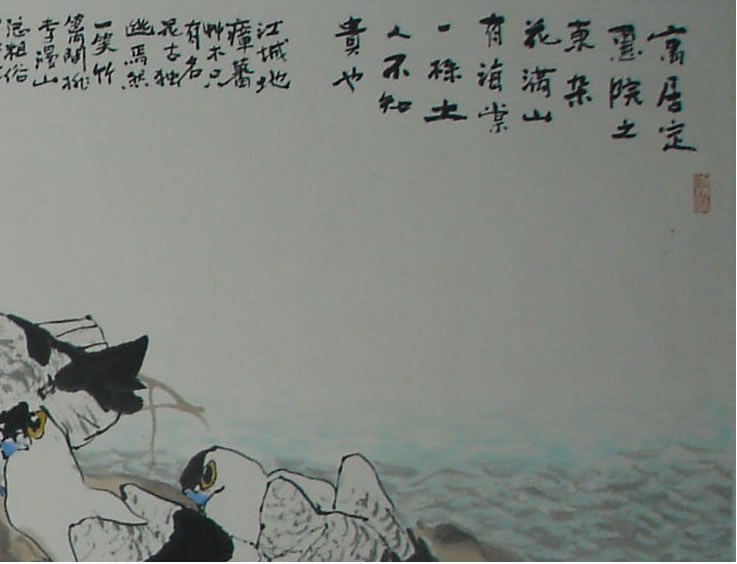 寓居定
惠院之
東杂
花滿山
有海棠
一株土
人不知
貴也
江城地
瘴蕃
艸木只
有名
花苦独
幽嫣然
一笑竹
篱間桃
李漫山
总粗俗